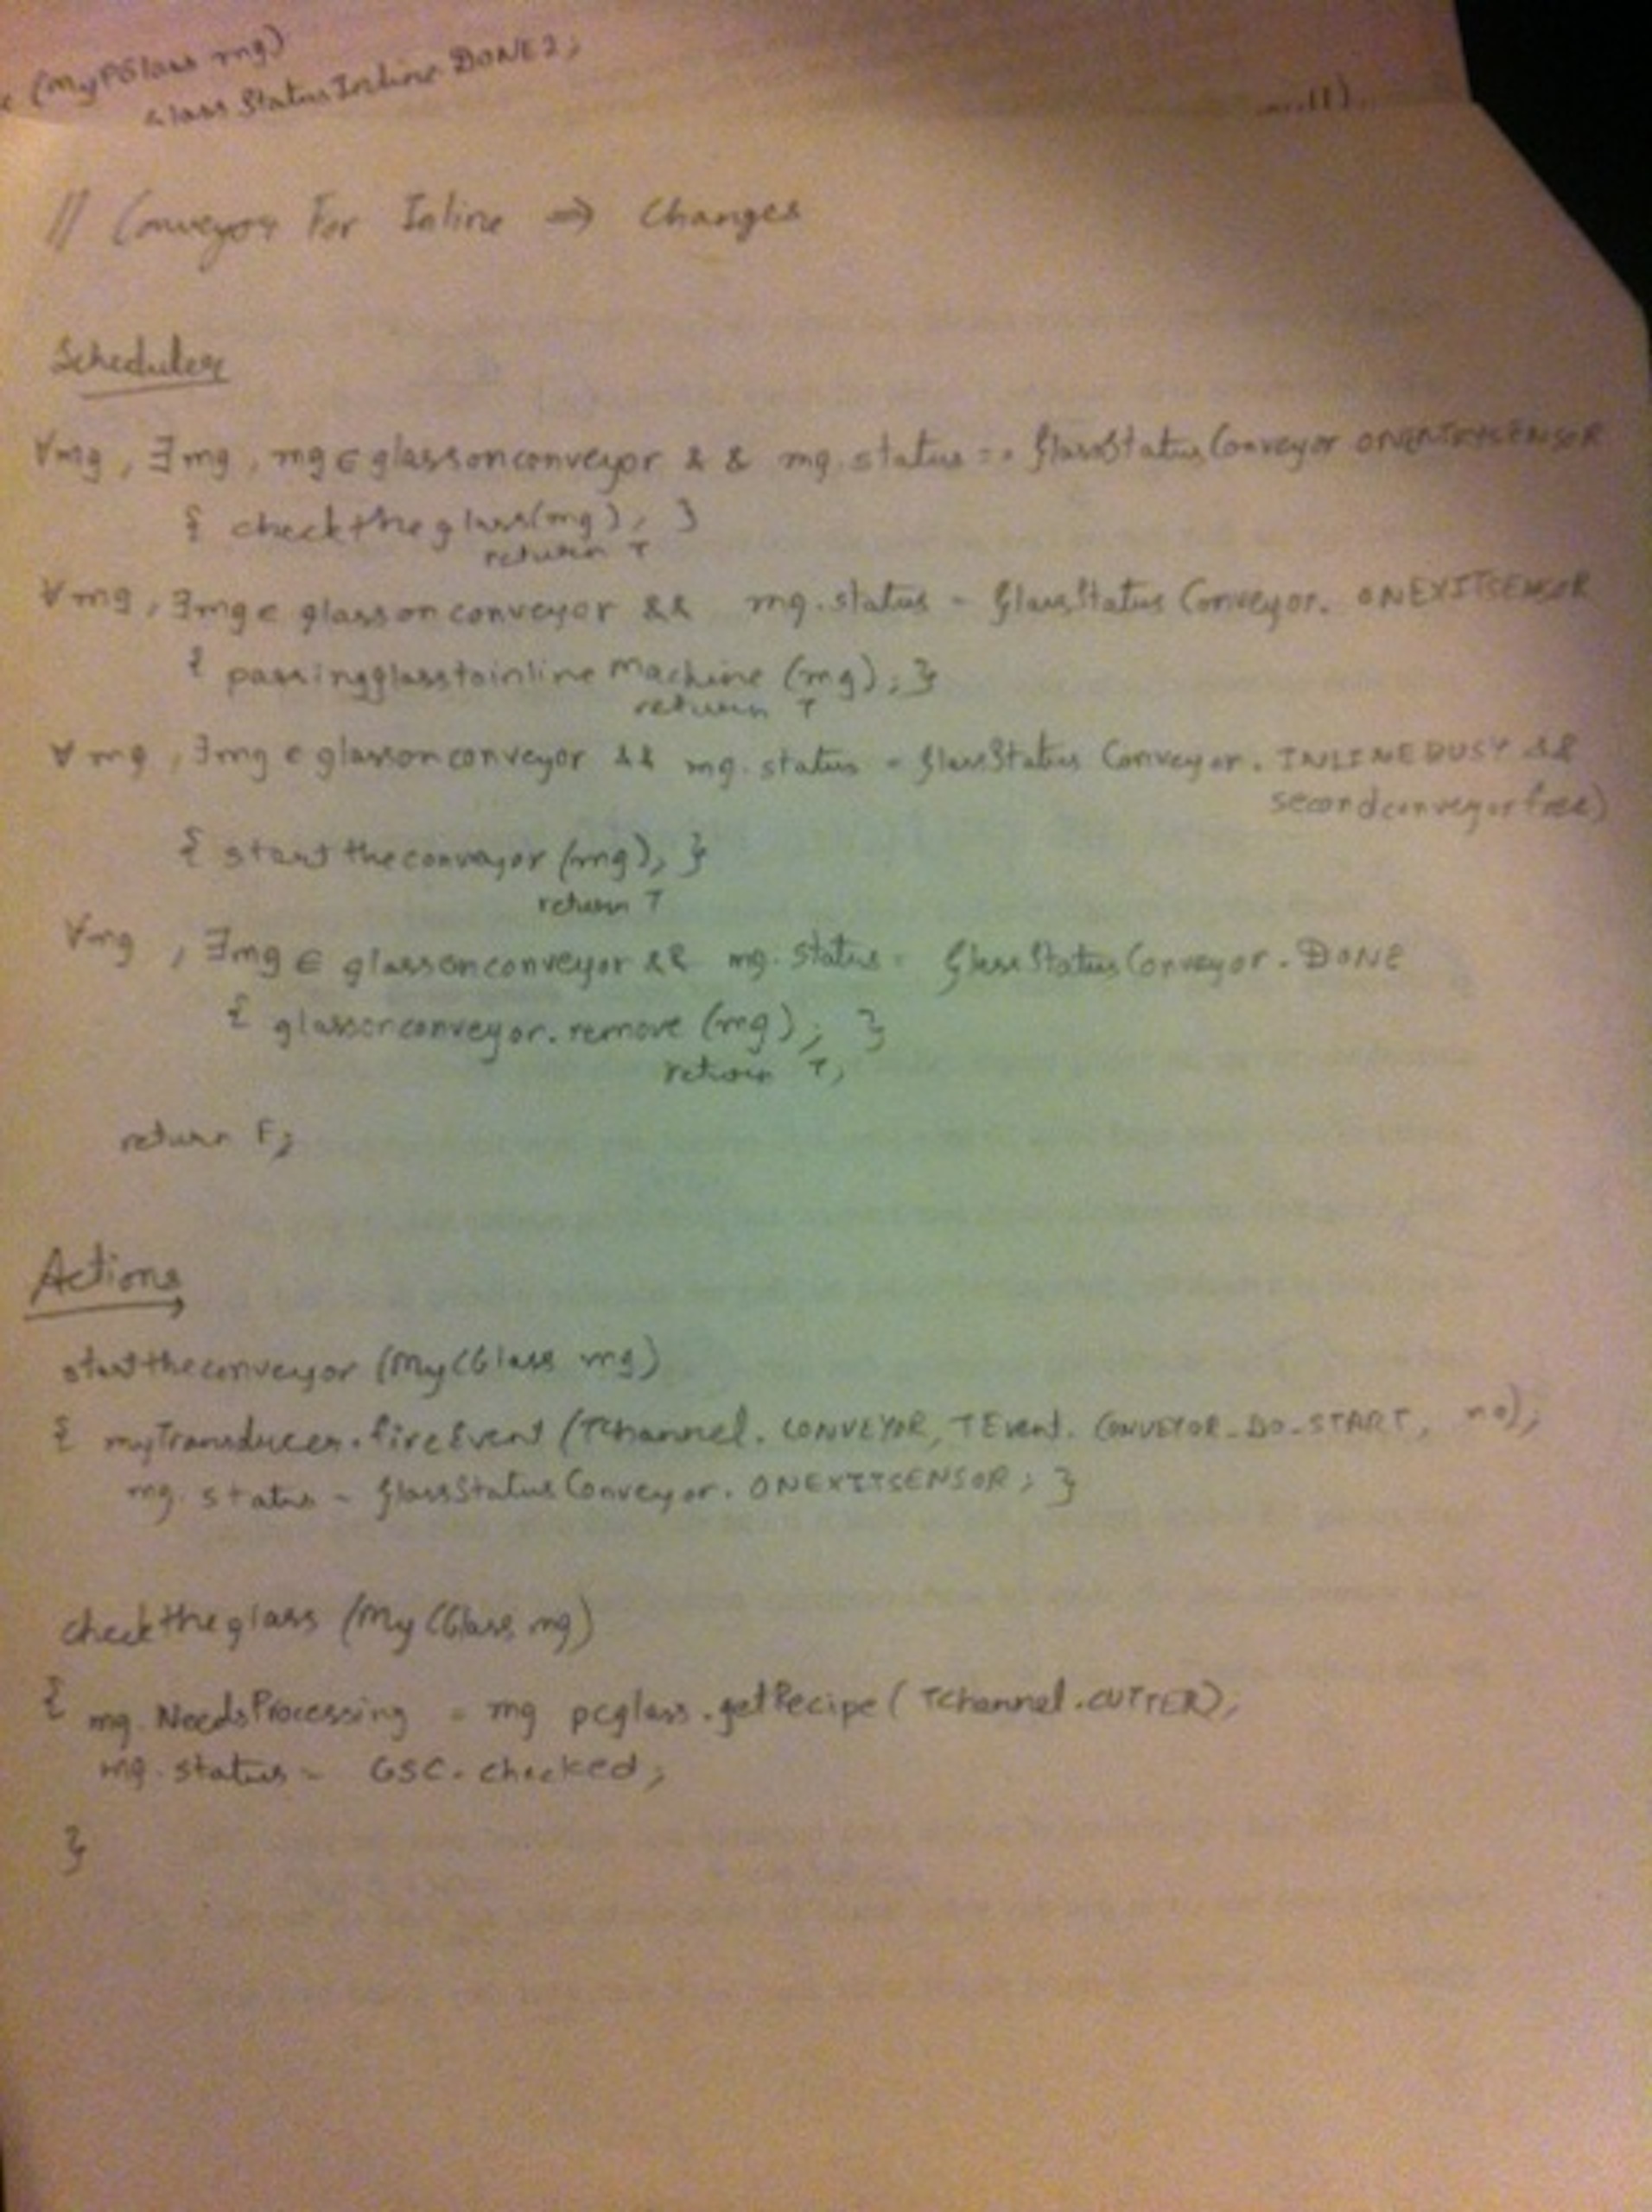 (MyPGlass mg)
Glass Status Inline DONE2;
// Conveyor For Inline ⇒ Changes
Scheduler
∀mg , ∃mg , mg ∈ glassonconveyor && mg.status == GlassStatus Conveyor ONENTRYSENSOR
{ checktheglass(mg); }
return T
∀mg , ∃mg ∈ glassonconveyor && mg.status = GlassStatus Conveyor. ONEXITSENSOR
{ passingglasstoinline Machine (mg); }
return T
∀ mg , ∃mg ∈ glassonconveyor && mg.status = GlassStatus Conveyor. INLINEBUSY &&
secondconveyorfree)
{ start theconveyor (mg); }
return T
∀mg , ∃mg ∈ glassonconveyor && mg.status = GlassStatus Conveyor. DONE
{ glassonconveyor.remove (mg); }
return T;
return F;
Actions
starttheconveyor (MyCGlass mg)
{ myTransducer.fireEvent (TChannel. CONVEYOR, TEvent. CONVEYOR_DO_START, no);
mg. status = GlassStatus Conveyor. ONEXITSENSOR; }
checktheglass (MyCGlass mg)
{ mg.NeedsProcessing = mg pcglass.getRecipe( TChannel.CUTTER);
mg.status = GSC.checked;
}